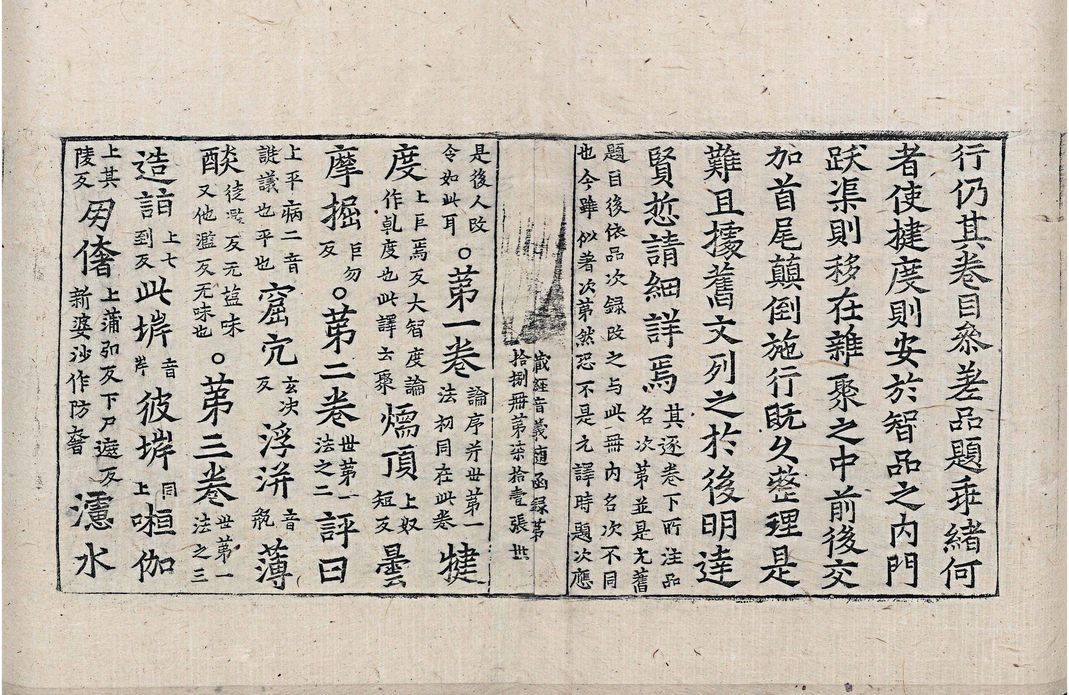 行仍其卷目叅差品題乖緒何
者使揵度則安於智品之内門
跃渠則移在雜聚之中前後交
加首尾顛倒施行既久整理是
難且據舊文列之於後明達
賢悊請細詳焉其逐卷下所注品名次第並是元舊
題目後依品次録改之与此冊内名次不同
也今雖似著次第然恐不是元譯時題次應
藏經音義随函録第
拾捌冊第柒拾壹張 世
是後人改令如此耳。第一卷論序并世第一法初同在此卷揵
度上巨焉反大智度論作乹度也此譯云聚煗頂上奴短反曇
摩掘巨勿反。第二卷世第一法之二評曰
上平病二音詖議也平也窟宂玄决反浮洴音甁薄
酸徒濫反无塩味又他濫反无味也。第三卷世第一法之三
造詣上七到反此㟁音岸彼㟁同上㘁伽
上其陵反用奢上蒲殁反下尸遮反新婆沙作防奢濾水